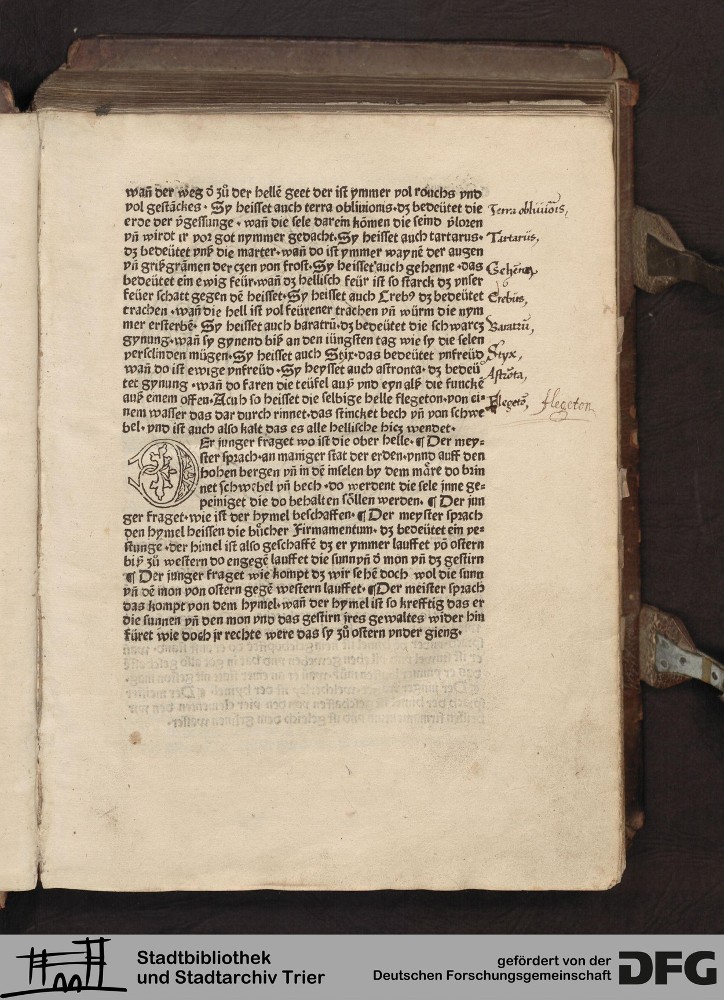 wañ der weg ð zů der hellē geet der ist ymmer vol rouchs vnd
vol gestāckes · Sy heisset auch terra obliuionis·dʒ bedeütet die
erde der v̄gessunge · wañ die sele darein kōmen die seind v̄lozen
vñ wirdt ir vor got nymmer gedacht·Sy heisset auch tartarus·
dʒ bedeütet vnß die marter·wañ do ist ymmer waynē der augen
vñ grißgrāmen der czen von frost·Sy heisset auch gehenne ·das
bedeütet ein ewig feür·wañ dʒ hellisch feür ist so starck dʒ vnser
feüer schatt gegen dē heisset·Sy heisset auch Ereb9 dʒ bedeütet
trachen ·wañ die hell ist vol feürener trachen vñ würm die nym
mer ersterbē· Sy heisset auch baratrū·dʒ bedeütet die schwarcʒ
gynung·wañ sy gynend biß an den iüngsten tag wie sy die selen
verslinden mügen·Sy heisset auch Stix·das bedeütet vnfreüd
wañ do ist ewige vnfreüd · Sy heysset auch astronta·dʒ bedeü
tet gynung ·wañ do faren die teüfel auß vnd eyn alß die funckē
auß einem offen·Acuh so heisset die selbige helle flegeton·von ei=
nem wasser das dar durch rinnet·das stincket bech vñ von schwe
bel·vnd ist auch also kalt das es alle hellische hicʒ wendet·
Terra obliuiōis,
Tartarus,
Gehenna
Erebus,
Baratrū,
Styx,
Astrōta,
Flegetō,
flegeton
DEr junger fraget wo ist die ober helle·¶ Der mey=
ster sprach·an maniger stat der erden·vnnd auff den
hohen bergen vñ in dē inselen by dem māre do brin
net schwebel vñ bech ·do werdent die sele jnne ge=
peiniget die do behalten sōllen werden· ¶ Der jun
ger fraget·wie ist der hymel beschaffen·¶ Der meyster sprach
den hymel heissen die bůcher Firmamentum· dʒ bedeütet ein ve=
stunge ·der himel ist also geschaffē dʒ er ymmer lauffet vō ostern
biß zů western do engegē lauffet die sunn vñ ð mon vñ dʒ gestirn
¶ Der junger fraget wie kompt dʒ wir sehē doch wol die sunn
vñ dē mon von ostern gegē western lauffet·¶Der meister sprach
das kompt von dem hymel·wañ der hymel ist so krefftig das er
die sunnen vñ den mon vnd das gestirn jres gewaltes wider hin
füret wie doch jr rechte were das sy zů ostern vnder gieng·
Stadtbibliothek
und Stadtarchiv Trier
gefördert von der
Deutschen Forschungsgemeinschaft
DFG